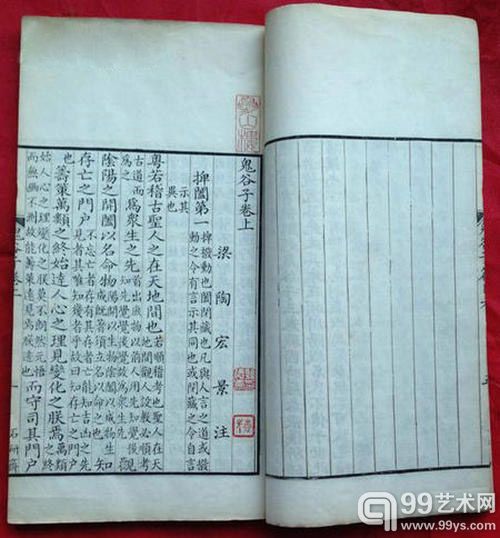 鬼谷子卷上
梁陶宏景注
捭闔第一 捭撥動也闔閉藏也凡與人言之道或撥
動之令有言示其同也或閉藏之令自言
示其
異也
粵若稽古聖人之在天地間也 若順稽考也聖人在天
地間觀人設教必順考
古道而
爲之
爲衆生之先 首出庶物以前人用先知覺後
知先覺覺後覺故爲衆生先 觀
陰陽之開闔以名命物 陽開以生物陰闔以成物生
成既著須立名以命之也 知
存亡之門户 不忘亡者存有其存者亡能知吉凶之先
見者其唯知幾者乎故曰知存亡之門户
也
籌策萬類之終始達人心之理見變化之朕焉 萬類之終
始人心之理變化之朕莫不朗然元悟
而無幽不測故能籌策遠見焉 而守司其門户
一
石研齋
99艺术网
www.99ys.com